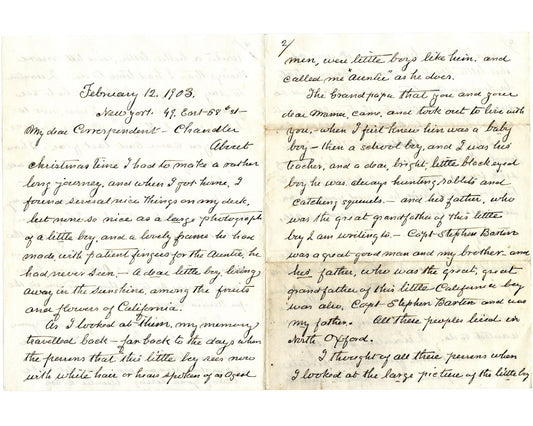 February 12. 1903.
New york. 49. East-58th st-
My dear Correspondent - Chandler
About
Christmas time I had to make a rather
long journey, and when I got home, I
found several nice things on my desk.
but none so nice as a large photograph
of a little boy, and a lovely frame he has
made with patient fingers for the Auntie, he
had never seen - A dear little boy living
away in the sunshine, among the fruits
and flowers of California.
As I looked at them, my memory
travelled back - far back to the days when
the persons that this little boy sees now
with white hair or hears spoken of as Aged
2/
men, were little boys like him. and
called me "Auntie" as he does.
The Grandpapa that you and your
dear Mama, came and took out to live with
you, - when I first knew him was a baby
boy - then a school boy, and I was his
teacher, and a dear, bright, little black eyed
boy he was. always hunting rabbits and
catching squirrels. - and his father, who
was the great grandfather of this little
boy I am writing to. - Capt Stephen Barton
was a great good man and my brother. and
his father, who was the great, great
grandfather of this little California boy
was also, Capt Stephen Barton and was
my father. - All these peoples lived in
North Oxford.
I thought of all these persons when
I looked at the large picture of the little boy